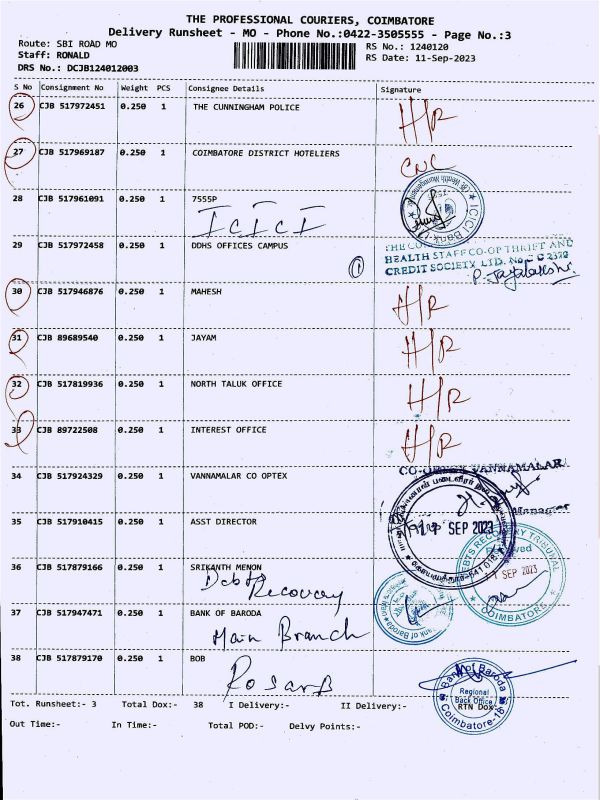 THE PROFESSIONAL COURIERS, COIMBATORE
Delivery Runsheet - MO - Phone No.:0422-3505555 - Page No.:3
Route: SBI ROAD MO
RS No.: 1240120
Staff: RONALD
RS Date: 11-Sep-2023
DRS No.: DCJB124012003
S No Consignment No Weight PCS Consignee Details Signature
26 CJB 517972451 0.250 1 THE CUNNINGHAM POLICE H/R
27 CJB 517969187 0.250 1 COIMBATORE DISTRICT HOTELIERS CNC
28 CJB 517961091 0.250 1 7555P
ICICI
ICICI Bank
29 CJB 517972458 0.250 1 DDHS OFFICES CAMPUS
1
HEALTH STAFF CO-OP THRIFT AND
CREDIT SOCIETY LTD. No. C 2379
30 CJB 517946876 0.250 1 MAHESH H/R
31 CJB 89689540 0.250 1 JAYAM H/R
32 CJB 517819936 0.250 1 NORTH TALUK OFFICE H/R
33 CJB 89722508 0.250 1 INTEREST OFFICE H/R
CO-OPTEX VANNAMALAR
34 CJB 517924329 0.250 1 VANNAMALAR CO OPTEX
Manager
35 CJB 517910415 0.250 1 ASST DIRECTOR
SEP 2023
DEBTS RECOVERY TRIBUNAL
Received
11 SEP 2023
COIMBATORE
36 CJB 517879166 0.250 1 SRIKANTH MENON
Debt
Recovery
37 CJB 517947471 0.250 1 BANK OF BARODA
Main Branch
Bank of Baroda
38 CJB 517879170 0.250 1 BOB
Bank of Baroda
Regional
Back Office
Coimbatore-18
Tot. Runsheet:- 3 Total Dox:- 38 I Delivery:- II Delivery:- RTN Dox:-
Out Time:- In Time:- Total POD:- Delvy Points:-